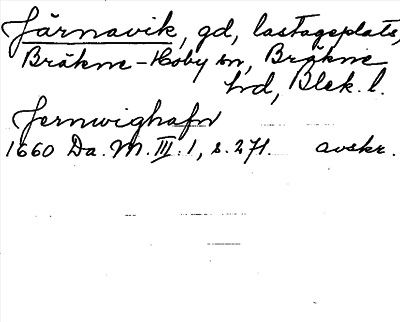 Järnavik, gd, lastageplats,
Bräkne-Hoby sn, Bräkne
hd, Blek. l.
Jernwighafn
1660 Da. M. III: 1, s. 271. avskr.